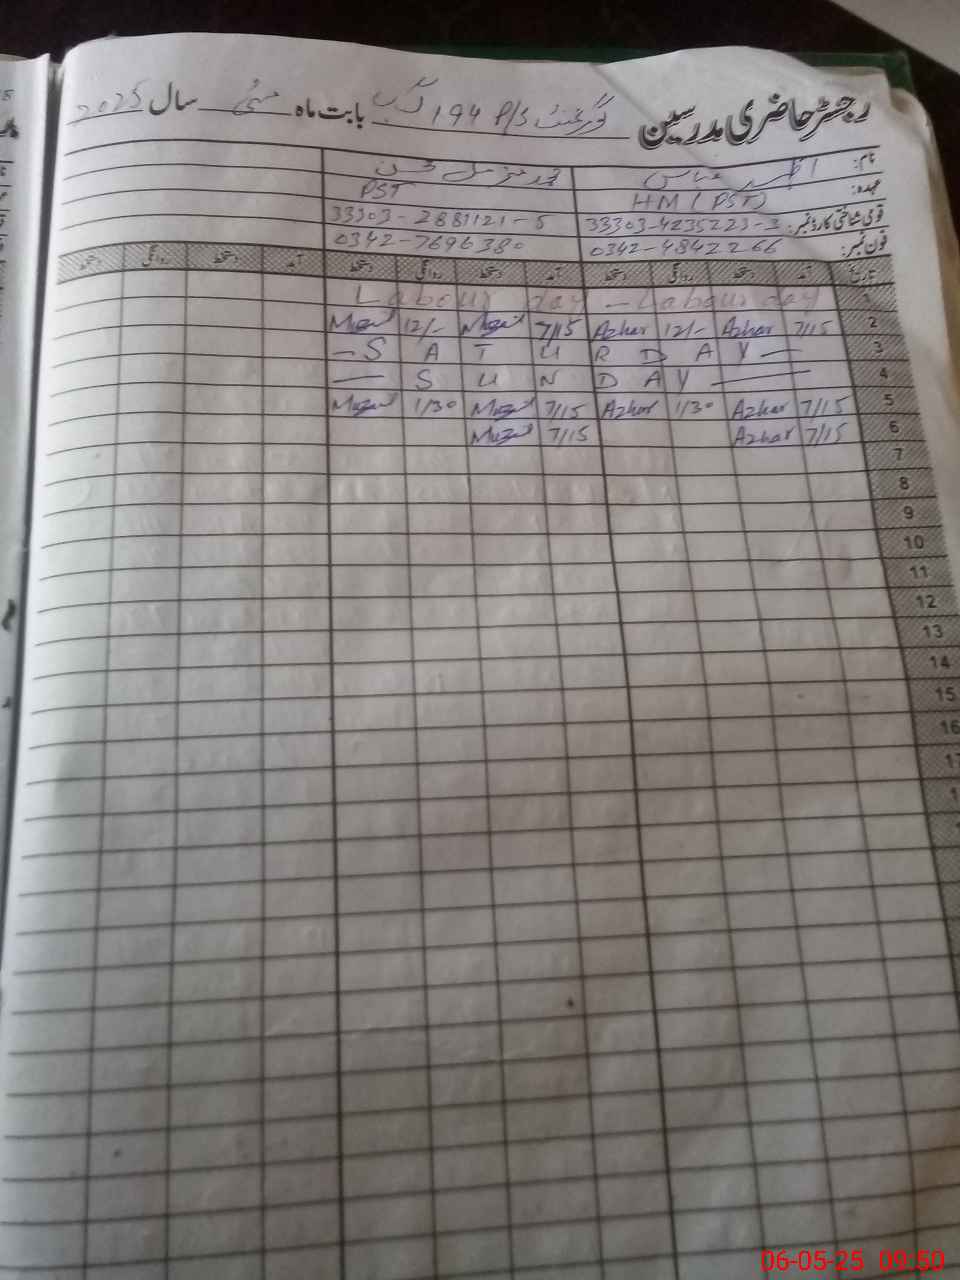 رجسٹر حاضری مدرسین گورنمنٹ P/S 194 گ ب بابت ماہ مئی سال 2025
نام: اظہر عباس محمد مزمل حسن
عہدہ: HM (PST) PST
قومی شناختی کارڈ نمبر: 33303-4235223-3 33303-2881121-5
فون نمبر: 0342-4842266 0342-7696380
تاریخ آمد دستخط روانگی دستخط آمد دستخط روانگی دستخط آمد دستخط روانگی دستخط
1 Labour day - Labour day
2 7/15 Azhar 12/- Azhar 7/15 Muzml 12/- Muzml
3 - S A T U R D A Y -
4 - S U N D A Y -
5 7/15 Azhar 1/30 Azhar 7/15 Muzml 1/30 Muzml
6 7/15 Azhar 7/15 Muzml
7
8
9
10
11
12
13
14
15
16
06-05-25 09:50